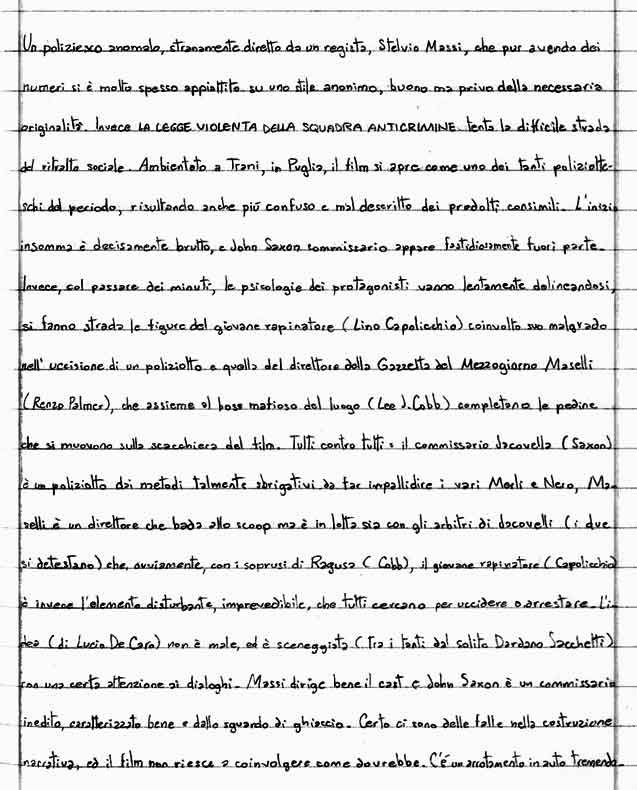 Un poliziesco anomalo, stranamente diretto da un regista, Stelvio Massi, che pur avendo dei
numeri si è molto spesso appiattito su uno stile anonimo, buono ma privo della necessaria
originalità. Invece LA LEGGE VIOLENTA DELLA SQUADRA ANTICRIMINE tenta la difficile strada
del ritratto sociale. Ambientato a Trani, in Puglia, il film si apre come uno dei tanti poliziotte-
schi del periodo, risultando anche più confuso e mal descritto dei prodotti consimili. L'inizio
insomma è decisamente brutto, e John Saxon commissario appare fastidiosamente fuori parte.
Invece, col passare dei minuti, le psicologie dei protagonisti vanno lentamente delineandosi,
si fanno strada le figure del giovane rapinatore (Lino Capolicchio) coinvolto suo malgrado
nell'uccisione di un poliziotto e quella del direttore della Gazzetta del Mezzogiorno Maselli
(Renzo Palmer), che assieme al boss mafioso del luogo (Lee J. Cobb) completano le pedine
che si muovono sulla scacchiera del film. Tutti contro tutti: il commissario Jacovella (Saxon)
è un poliziotto dai metodi talmente sbrigativi da far impallidire i vari Merli e Nero, Ma-
selli è un direttore che bada allo scoop ma è in lotta sia con gli arbitri di Jacovelli (i due
si detestano) che, ovviamente, con i soprusi di Ragusa (Cobb), il giovane rapinatore (Capolicchio)
è invece l'elemento disturbante, imprevedibile, che tutti cercano per uccidere o arrestare. L'i-
dea (di Lucio De Caro) non è male, ed è sceneggiata (tra i tanti dal solito Dardano Sacchetti)
con una certa attenzione ai dialoghi. Massi dirige bene il cast e John Saxon è un commissario
inedito, caratterizzato bene e dallo sguardo di ghiaccio. Certo ci sono delle falle nella costruzione
narrativa, ed il film non riesce a coinvolgere come dovrebbe. C'é un arrotamento in auto tremendo